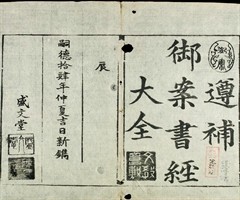 遵補
御案書經
大全
辰
嗣德拾肆年仲夏吉日新鐫
盛文堂